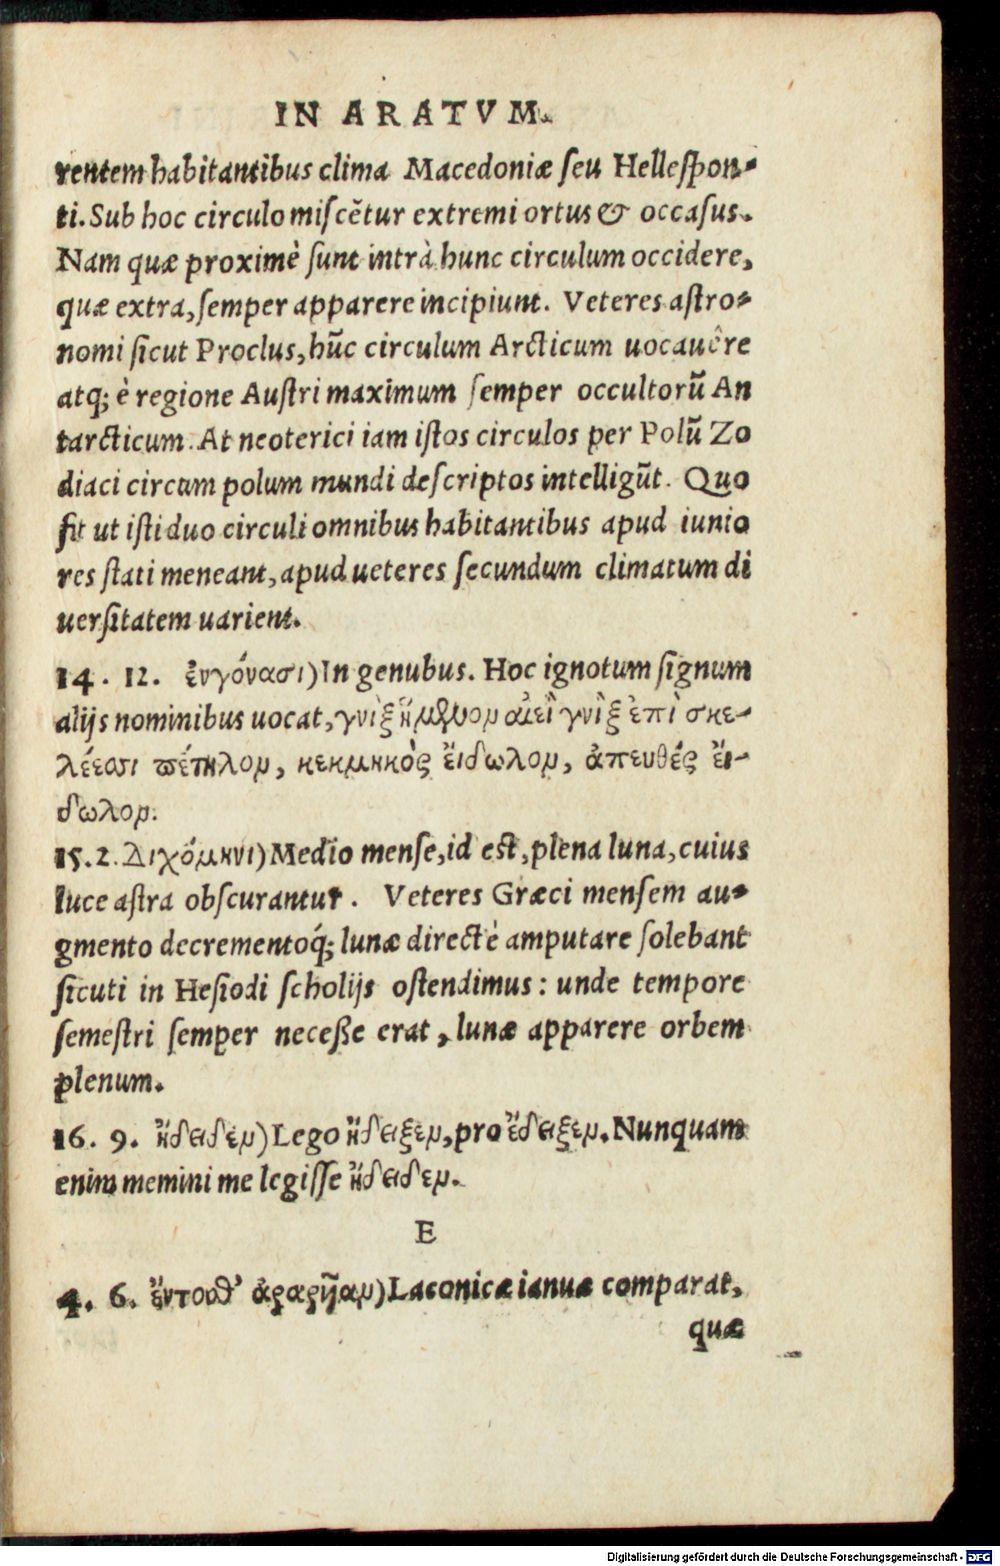 IN ARATVM.
rentem habitantibus clima Macedoniæ ſeu Helleſpon-
ti. Sub hoc circulo miſcẽtur extremi ortus & occaſus.
Nam quæ proximè ſunt intrà hunc circulum occidere,
quæ extra, ſemper apparere incipiunt. Veteres aſtro-
nomi ſicut Proclus, hũc circulum Arcticum uocauêre
atq; è regione Auſtri maximum ſemper occultorũ An
tarcticum. At neoterici iam iſtos circulos per Polũ Zo
diaci circum polum mundi deſcriptos intelligũt. Quo
fit ut iſti duo circuli omnibus habitantibus apud iunio
res ſtati meneant, apud ueteres ſecundum climatum di
uerſitatem uarient.
14. 12. ἐνγόνασι) In genubus. Hoc ignotum ſignum
alijs nominibus uocat, γνὶξ ἥμενον αἰεὶ γνὶξ ἐπὶ σκε-
λέεσσι πέπηλον, κεκμηκὸς ἔιδωλον, ἀπευθές ἔι-
δωλον.
15. 2. Διχόμηνι) Medio menſe, id eſt, plena luna, cuius
luce aſtra obſcurantur. Veteres Græci menſem au-
gmento decrementoq́; lunæ directè amputare ſolebant
ſicuti in Heſiodi ſcholijs oſtendimus: unde tempore
ſemeſtri ſemper neceſſe erat, lunæ apparere orbem
plenum.
16. 9. ἤδειδεν) Lego ἤδειξεν, pro ἔδειξεν. Nunquam
enim memini me legiſſe ἤδειδεν.
E
4. 6. ἔντοσθ' ἀραρῆαν) Laconicæ ianuæ comparat,
quæ
Digitalisierung gefördert durch die Deutsche Forschungsgemeinschaft - DFG